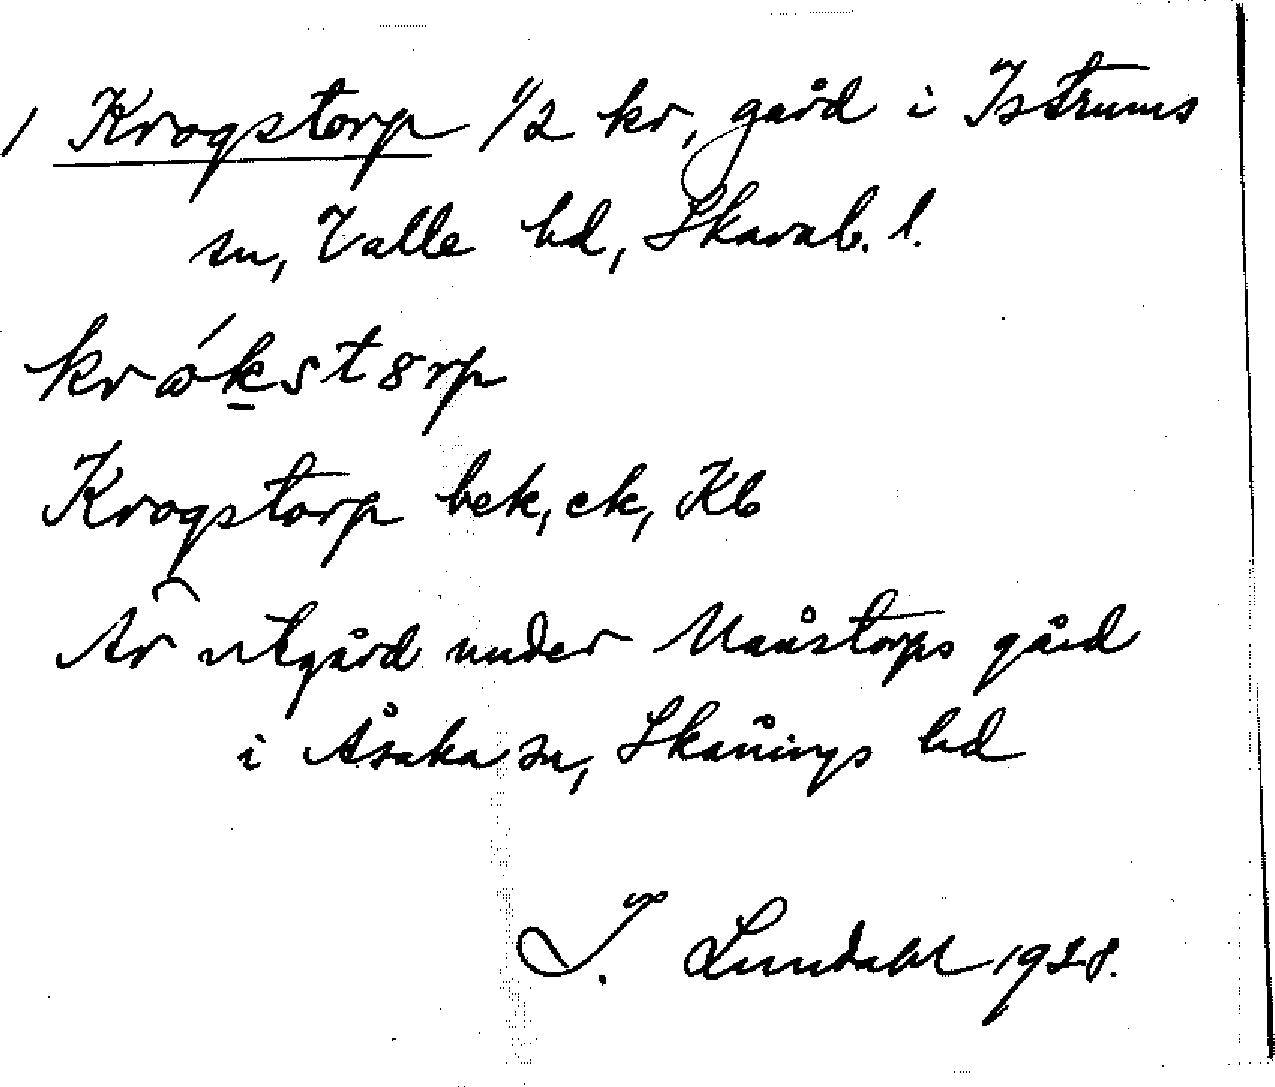 1 Krogstorp 1/2 kr, gård i Istrums
sn, Valle hd, Skarab. l.
krókstorp
Krogstorp bek, ek, Kb
Är utgård under Månstorps gård
i Åsaka sn, Skånings hd
I. Lundahl 1928.